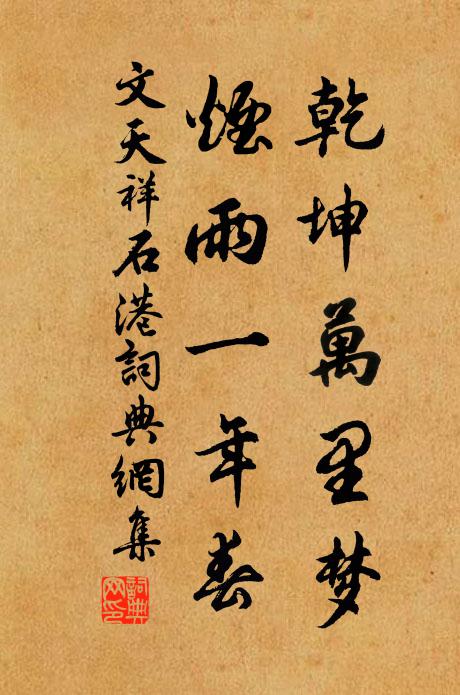 乾坤萬里梦
煙雨一年春
文天祥石港詞典網集
詞典網印